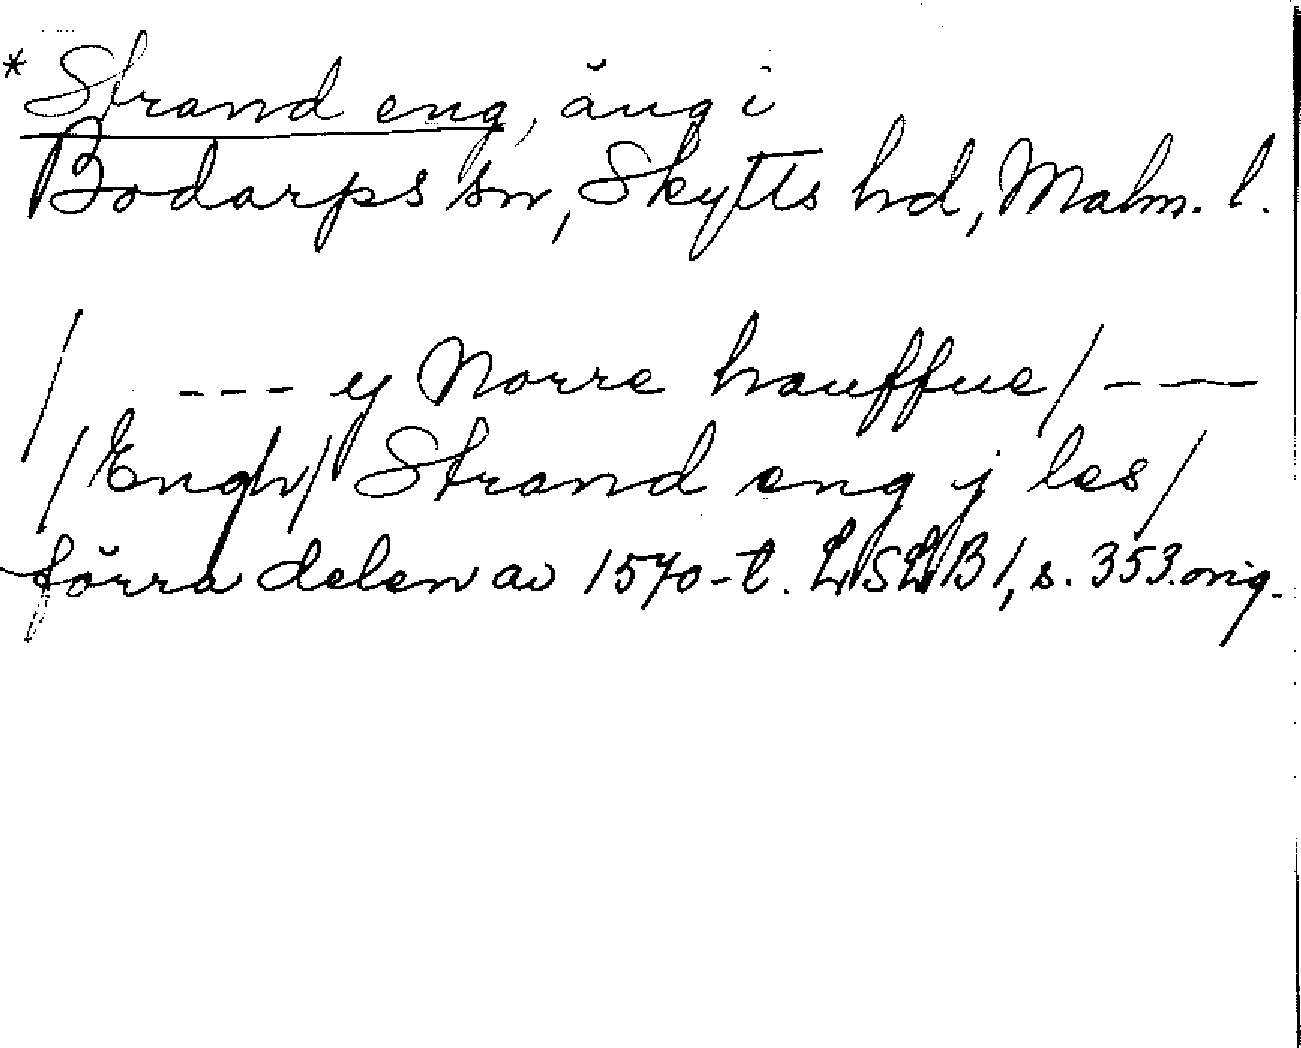 * Strand eng, äng i
Bodarps sn, Skytts hd, Malm. l.
/ --- y Norre hauffue/ ---
/Engh/ Strand eng j les/
förra delen av 1570-t. LSLB 1, s. 353. orig.